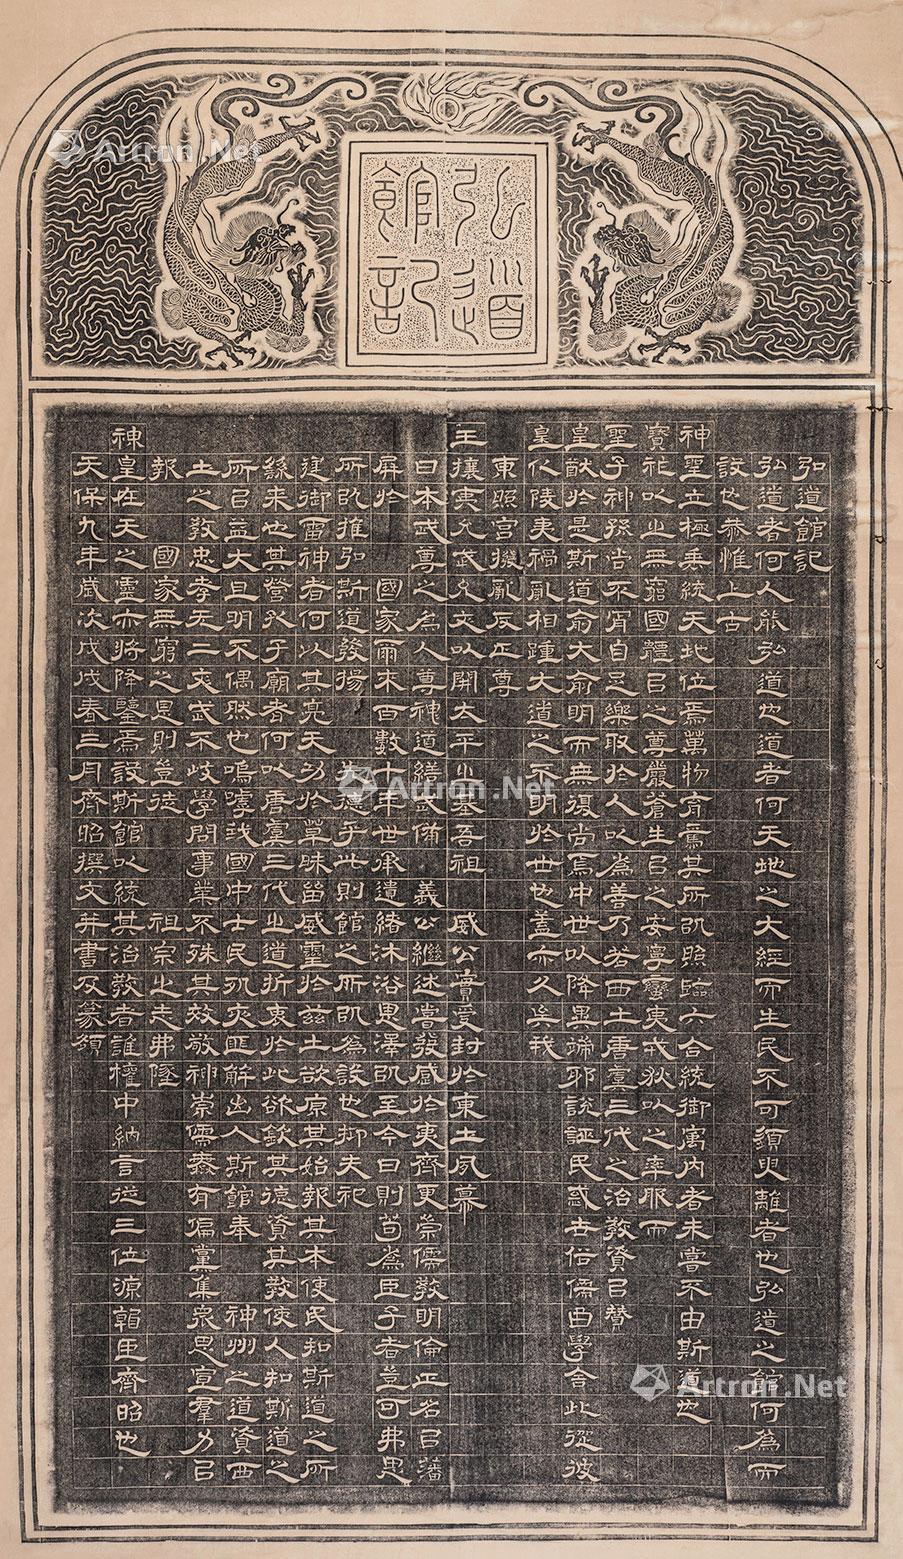 弘道館記
弘道館記
弘道者何人能弘道也道者何天地之大經而生民不可須臾離者也弘道之館何為而
設也恭惟上古
神聖立極垂統天地位焉萬物育焉其所㠯照臨六合統御寓內者未嘗不由斯道也
寶祚以之無窮國體㠯之尊嚴蒼生㠯之安寧蠻夷戎狄以之率服而
聖子神孫尚不肯自足樂取於人以為善乃若西土唐虞三代之治教資㠯贊
皇猷於是斯道兪大兪明而無復尚焉中世以降異端邪說誣民惑世俗儒曲學舍此從彼
皇化陵夷禍亂相踵大道之不明於世也蓋亦久矣我
東照宮撥亂反正尊
王攘夷允武允文以開太平之基吾祖 威公實受封於東土夙慕
日本武尊之為人尊神道繕武備 義公繼述嘗發感於夷齊更崇儒教明倫正名㠯藩
屏於 國家爾來百數十年世承遺緒沐浴恩澤㠯至今日則苟為臣子者豈可弗思
所㠯推弘斯道發揚 先德乎此則館之所㠯為設也抑夫祀
建御雷神者何以其亮天功於草昧留威靈於茲土欲原其始報其本使民知斯道之所
繇來也其營孔子廟者何以唐虞三代之道折衷於此欲欽其德資其教使人知斯道之
所㠯益大且明不偶然也嗚呼我國中士民夙夜匪解出入斯館奉 神州之道資西
土之教忠孝无二文武不岐學問事業不殊其效敬神崇儒無有偏黨集衆思宣羣力㠯
報 國家無窮之恩則豈徒 祖宗之志弗墜
神皇在天之靈亦將降鑒焉設斯館以統其治教者誰權中納言從三位源朝臣齊昭也
天保九年歲次戊戌春三月齊昭撰文并書及篆額
Artron.Net
Artron.Net
Artron.Net
Artron.Net